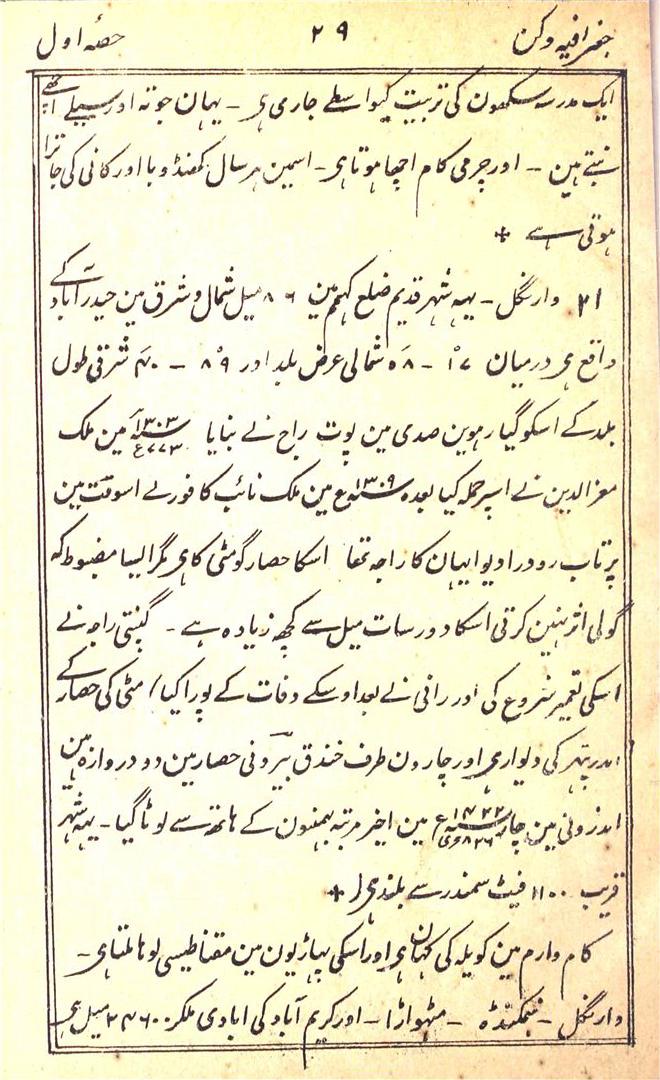 جغرافیہ دکن ۲۹ حصۂ اول
ایک مدرسہ سکھون کی تربیت کیواسطے جاری ہی ۔ یہان جوتہ اور سیلے اچھے
بنتے ہین ۔ اور چرمی کام اچھا ہوتا ہی ۔ اسمین ہر سال کھنڈوبا اور کانی کی جاترا
ہوتی ہے +
۲۱ وارنگل ۔ یہہ شہر قدیم ضلع کہمم مین ۸۶ میل شمال و شرق مین حیدرآباد کے
واقع ہی درمیان ۱۷ ۔ ۵۸ شمالی عرض بلد اور ۷۹ ۔ ۴۰ شرقی طول
بلد کے اسکو گیارہوین صدی مین پوت راج نے بنایا ۱۳۰۳ مین ملک
معز الدین نے اسپر حملہ کیا بعدہ ۱۳۰۹ع مین ملک نائب کافور نے اسوقت مین
پرتاب رودرا دیوا یہان کا راجہ تھا اسکا حصار گو مٹی کا ہی مگر ایسا مضبوط کہ
گولی اثر نہین کرتی اسکا دور سات میل سے کچھ زیادہ ہے ۔ گنپتی راجہ نے
اسکی تعمیر شروع کی اور رانی نے بعد اوسکے وفات کے پورا کیا / مٹی کی حصار کے
اندر پتہر کی دیوار ہی اور چارون طرف خندق بیرونی حصار مین دو دروازہ ہین
اندرونی مین چار ۱۴۲۲ع مین اخیر مرتبہ بہمنون کے ہاتھ سے لوٹا گیا ۔ یہہ شہر
قریب ۱۱۰۰ فیٹ سمندر سے بلند ہی / +
کام وارم مین کویلہ کی کہان ہی اور اسکی پہاڑیون مین مقناطیسی لوہا ملتا ہی ۔
وارنگل ۔ ہنمکنڈہ ۔ مٹہواڑا ۔ اور کریم آباد کی ابادی ملکر ۲۴۶۰۰ میل ہی